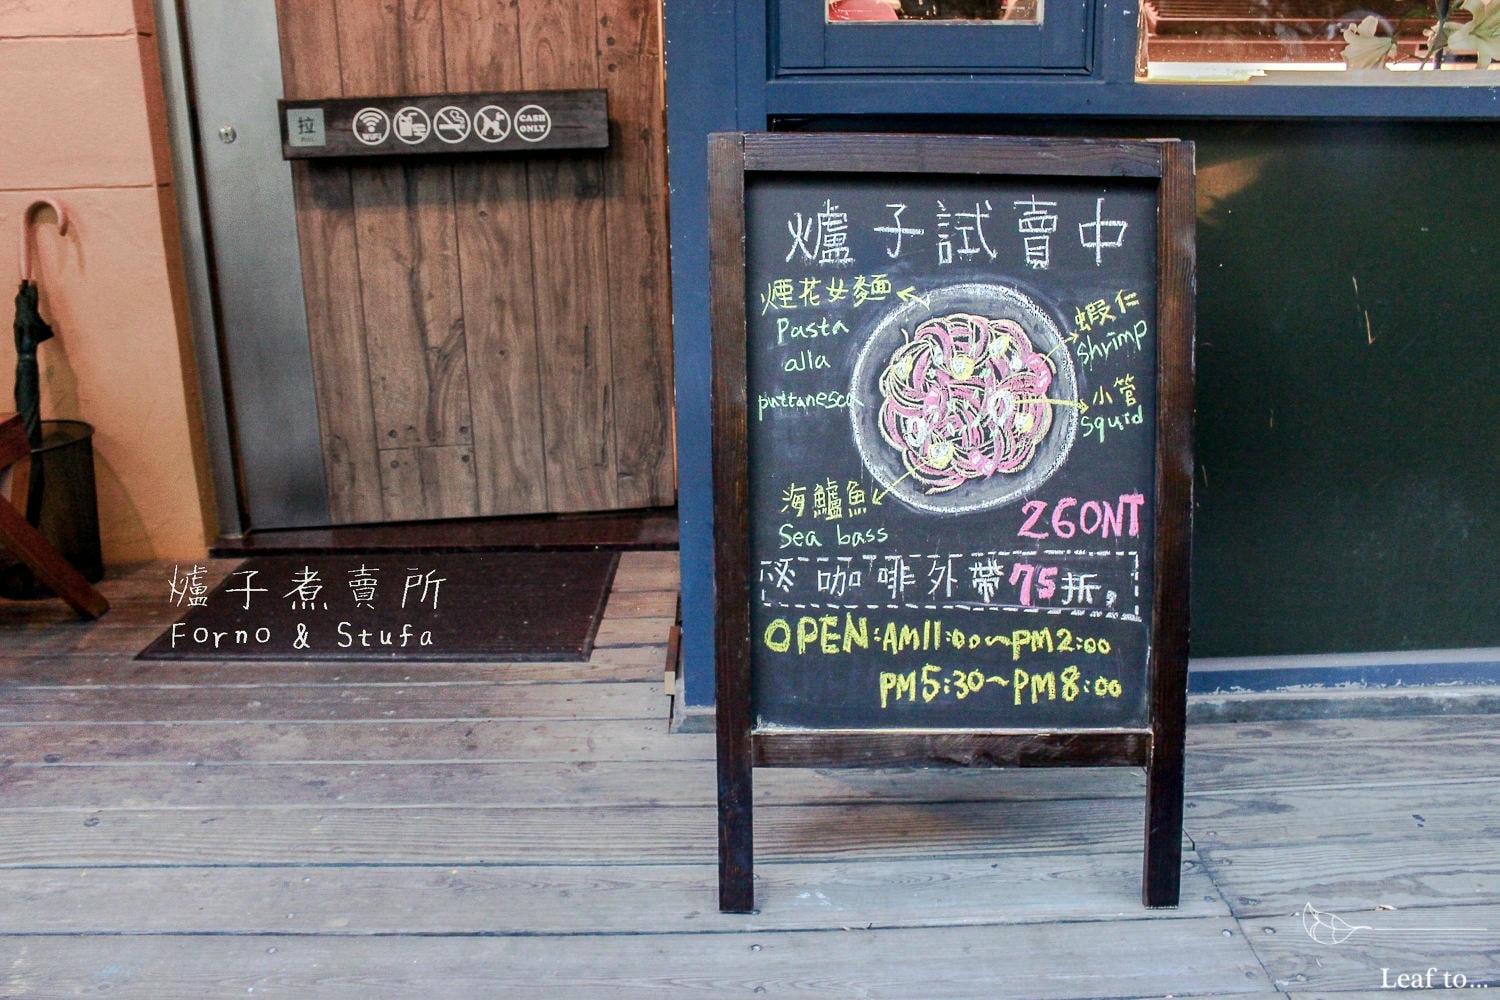 拉
WiFi
CASH
ONLY
爐子試賣中
煙花女麵
Pasta
alla
puttanesca
蝦仁
shrimp
小管
squid
海鱸魚
Sea bass
260NT
咖啡外帶75折
OPEN:AM11:00~PM2:00
PM5:30~PM8:00
爐子煮賣所
Forno & Stufa
Leaf to...